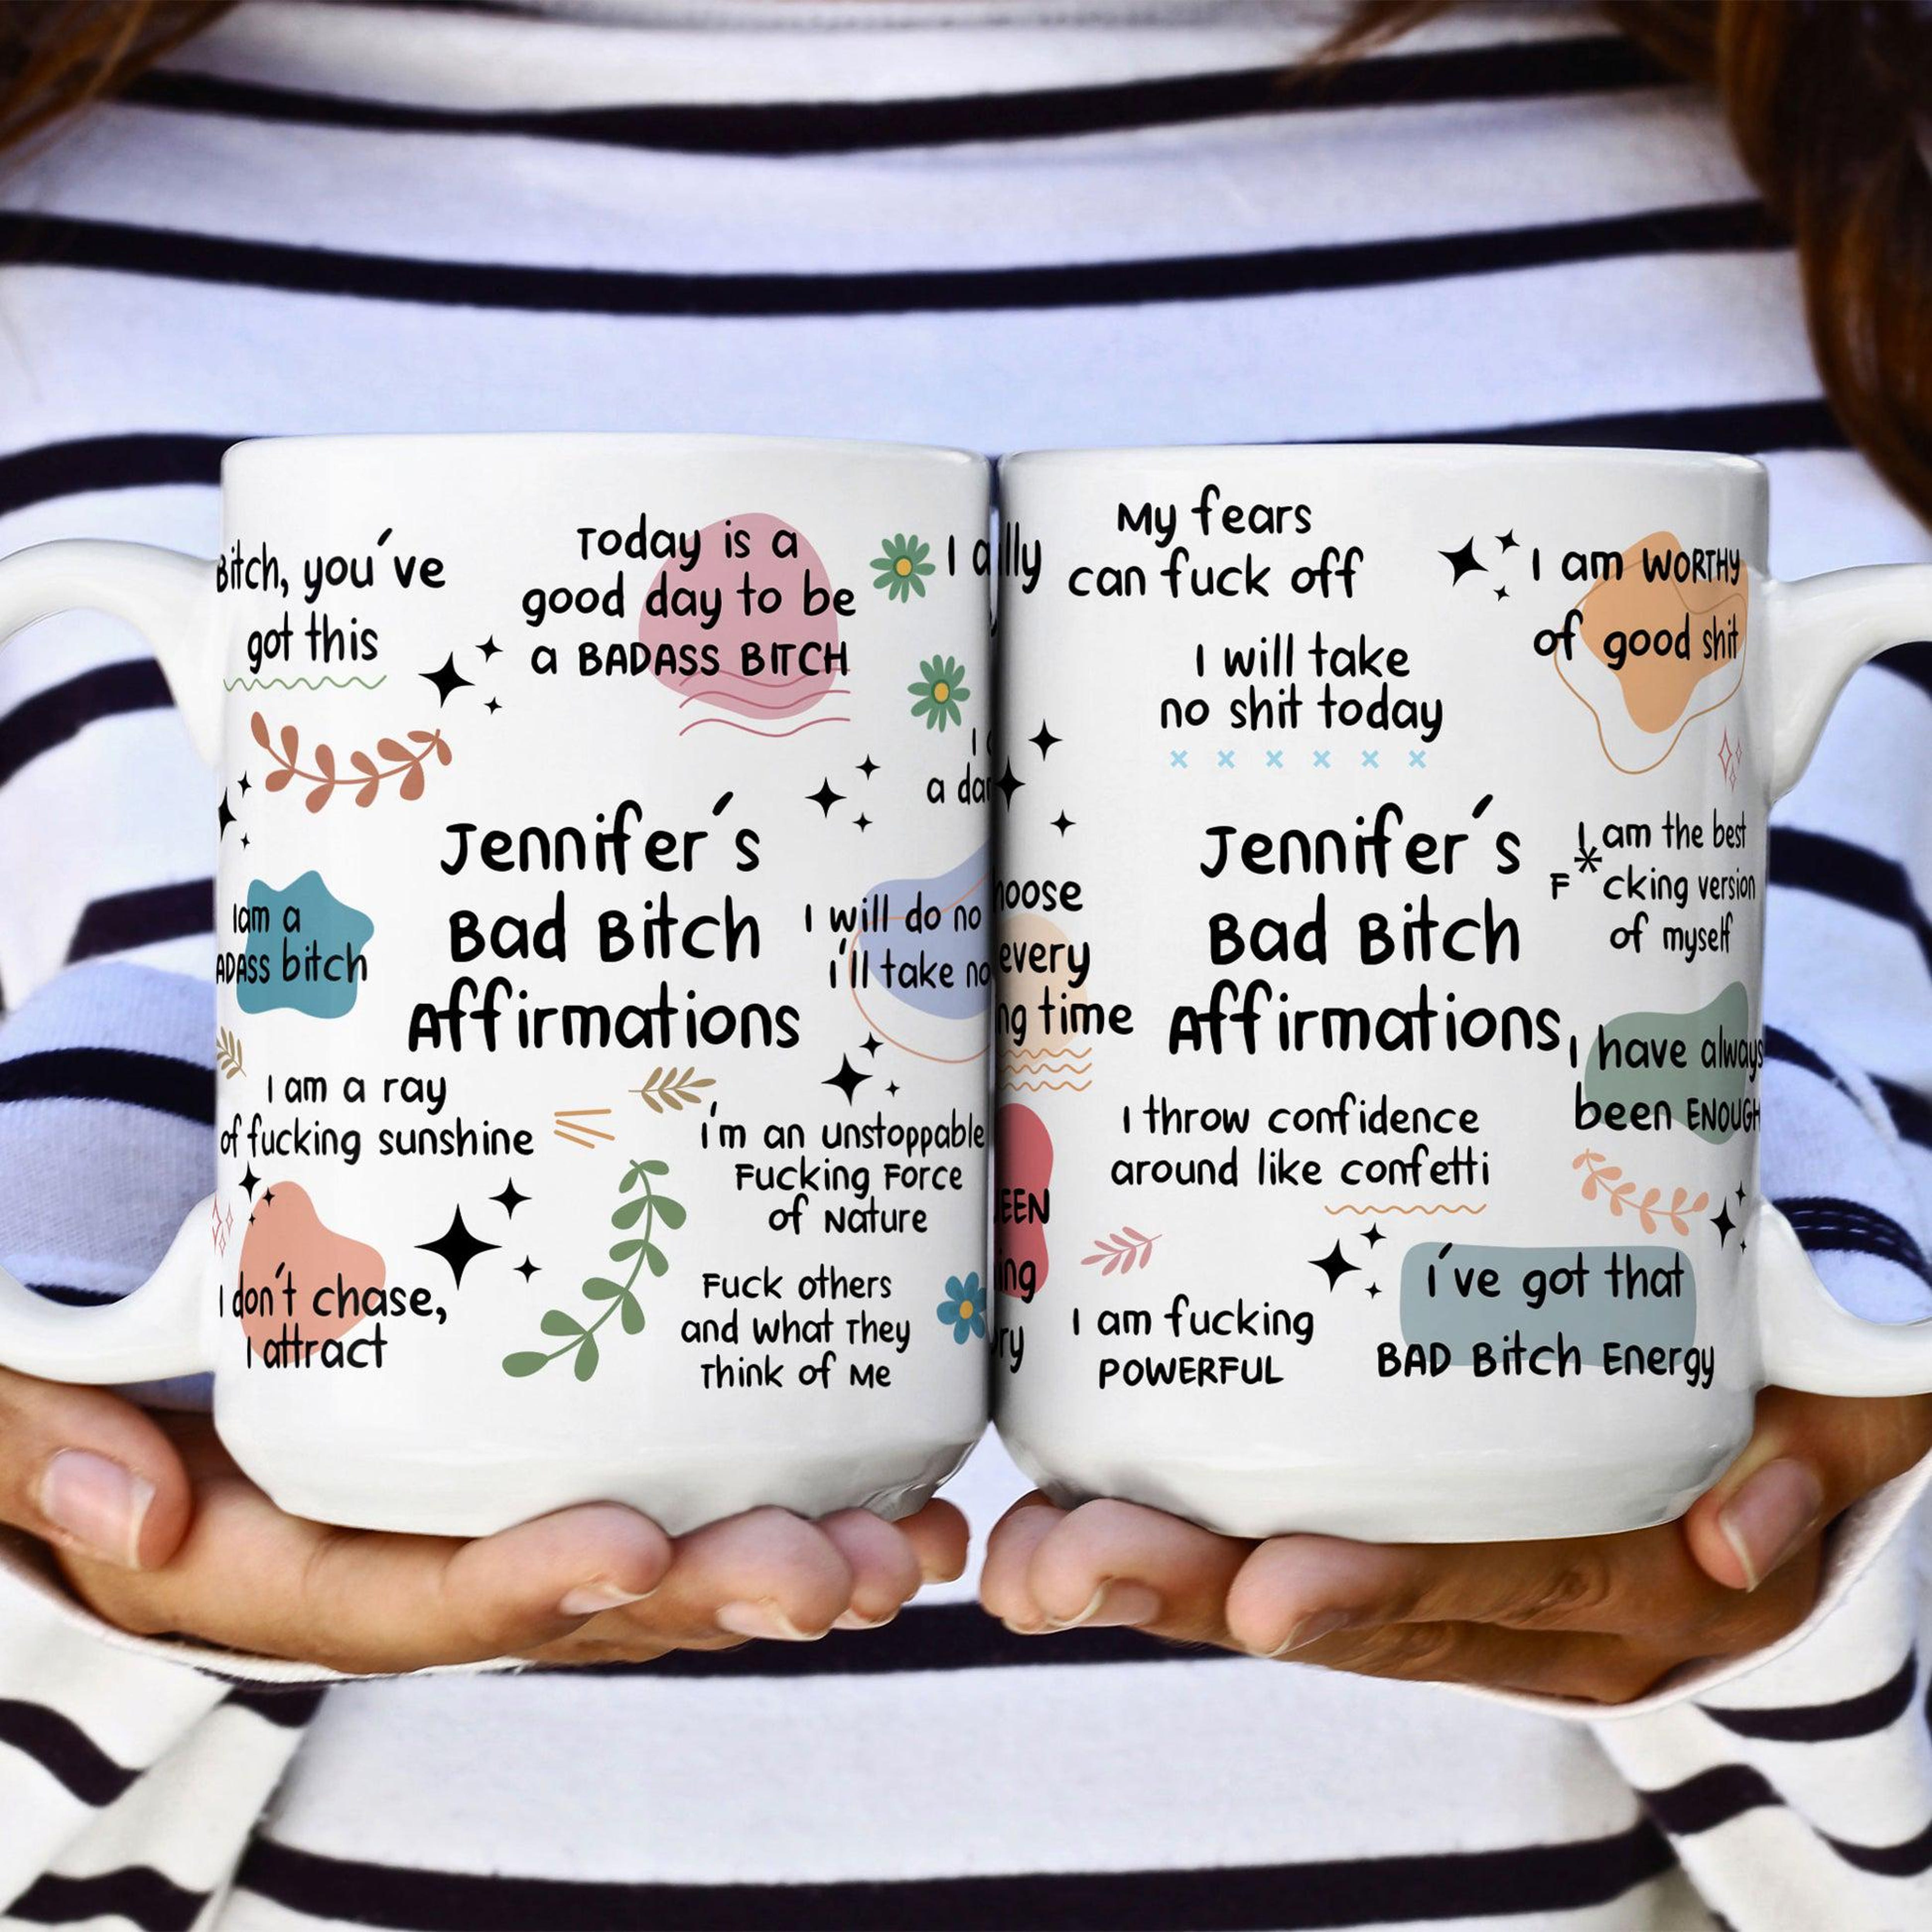 Bitch, you've
got this
Today is a
good day to be
a BADASS BITCH
I
Jennifer's
Bad Bitch
Affirmations
I am a
bitch
I will do no
i'll take no
I am a ray
of fucking sunshine
i'm an unstoppable
Fucking Force
of Nature
I don't chase,
I attract
Fuck others
and what They
Think of Me
My fears
can fuck off
I will take
no shit today
I am WORTHY
of good shit
Jennifer's
Bad Bitch
Affirmations
I am the best
F*cking version
of myself
every
time
I have always
been ENOUGH
I throw confidence
around like confetti
I am fucking
POWERFUL
i've got that
BAD Bitch Energy